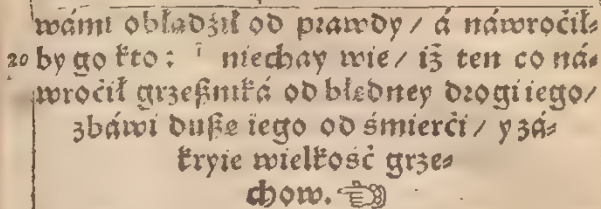 wámi obłądźił od prawdy / á náwroćił⸗
20 by go kto : i niechay wie / iż ten co ná⸗
wroćił grzeßniká od błędney drogi iego /
zbáwi dußę iego od śmierći / y zá⸗
kryie wielkość grze⸗
chow. ☜